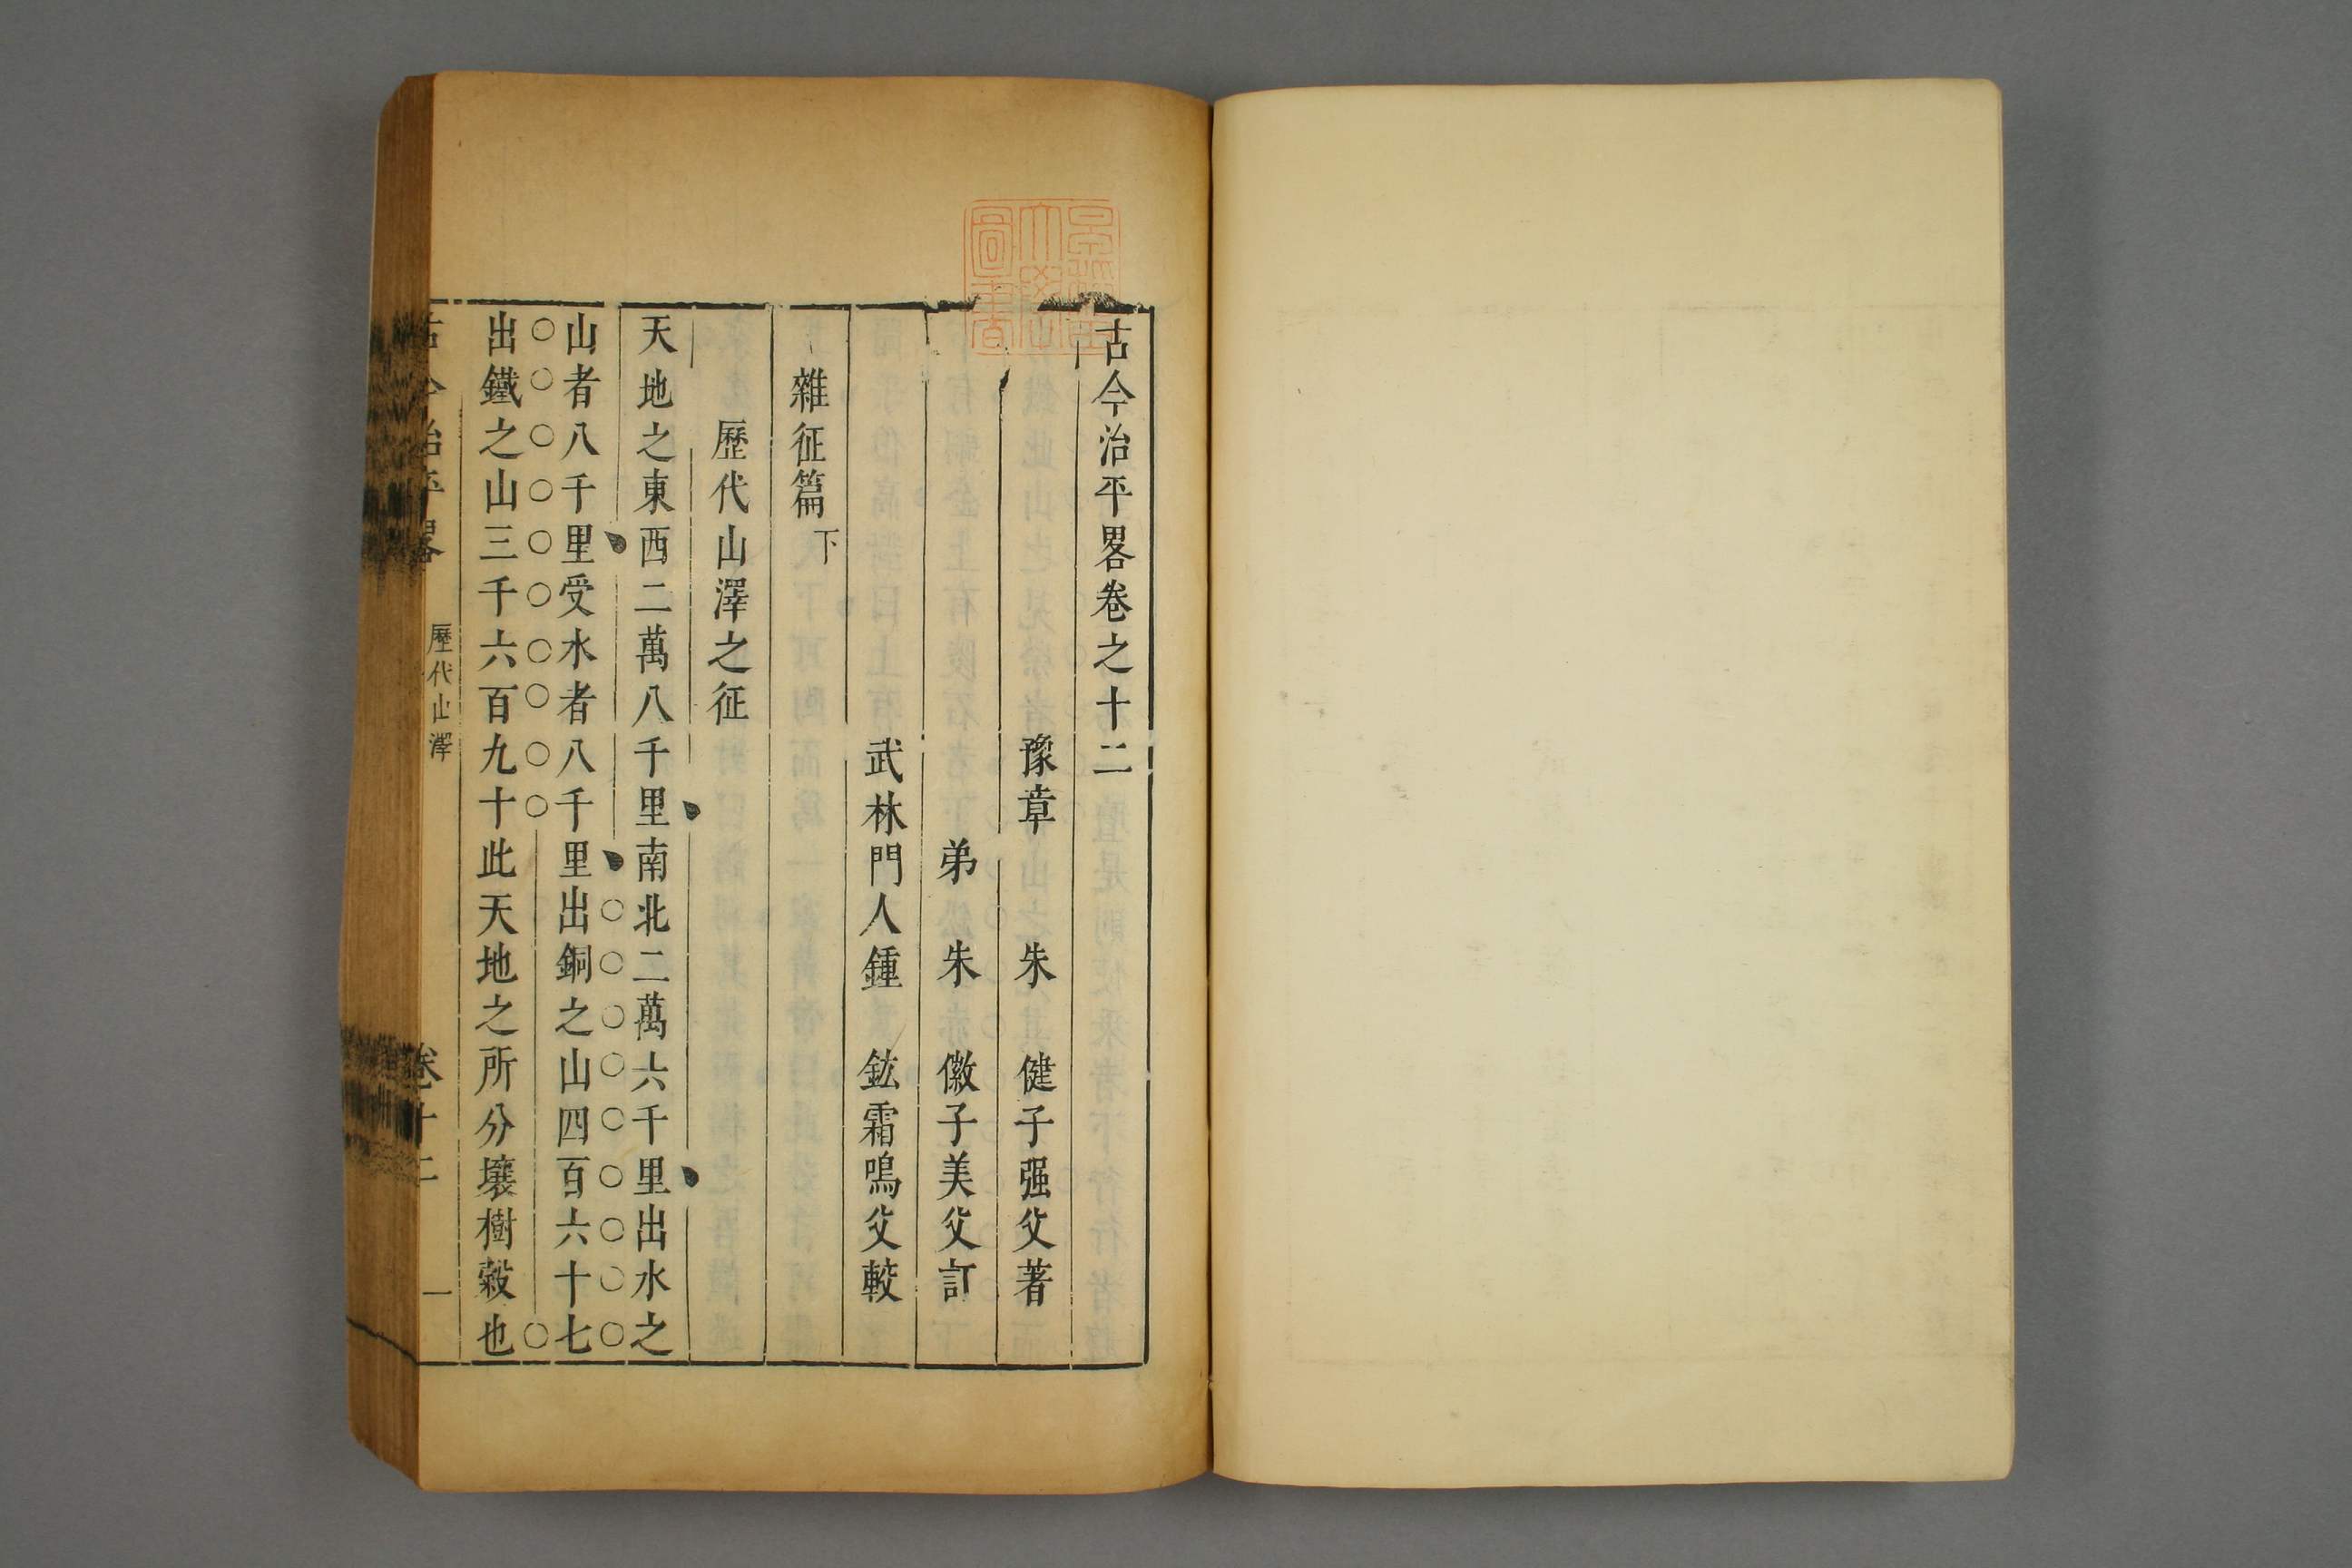 古今治平畧卷之十二
豫章 朱 健子强父著
弟 朱 徽子美父訂
武林門人鍾 鈜霜鳴父較
雜征篇下
歷代山澤之征
天地之東西二萬八千里南北二萬六千里出水之
山者八千里受水者八千里出銅之山四百六十七
出鐵之山三千六百九十此天地之所分壤樹穀也
古今治平畧 歷代山澤 卷十二 一